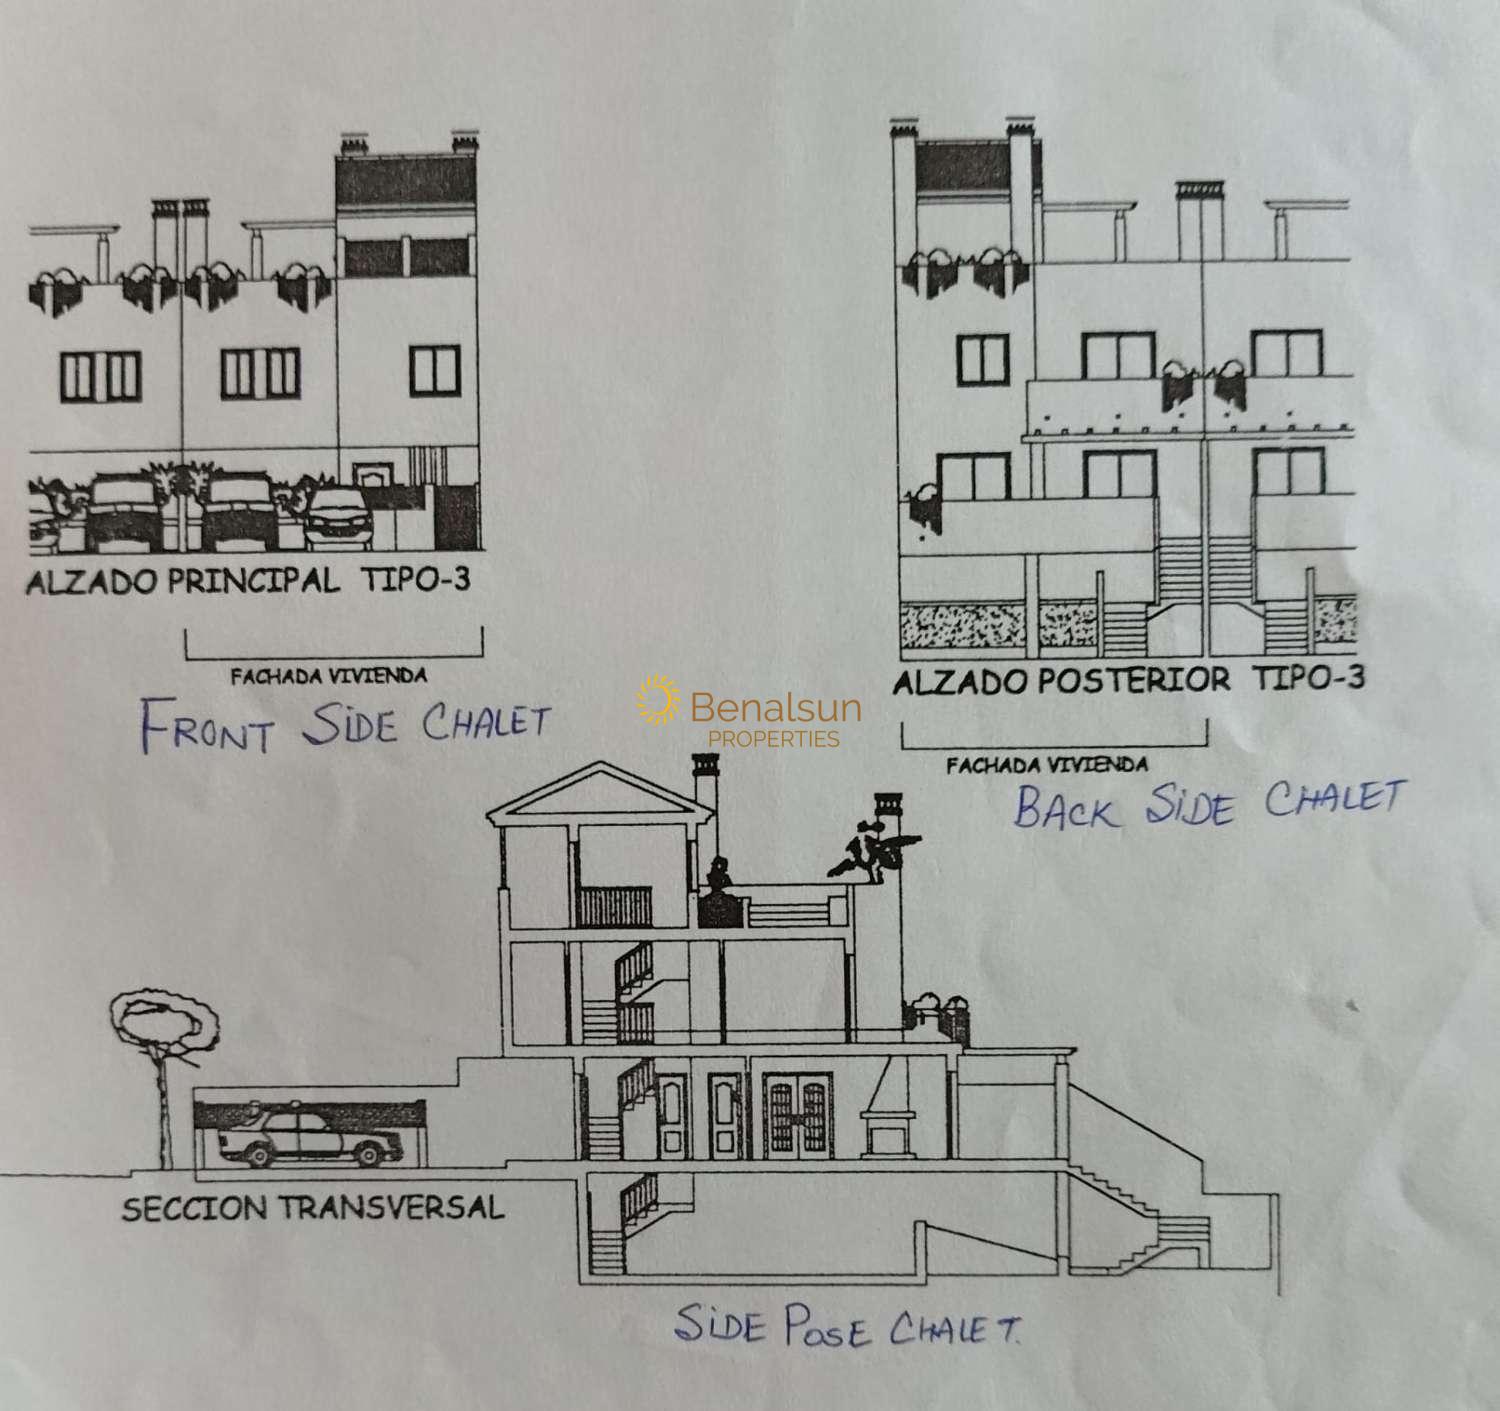 ALZADO PRINCIPAL TIPO-3
FACHADA VIVIENDA
FRONT SIDE CHALET
ALZADO POSTERIOR TIPO-3
FACHADA VIVIENDA
BACK SIDE CHALET
Benalsun
PROPERTIES
SECCION TRANSVERSAL
SIDE POSE CHALET.